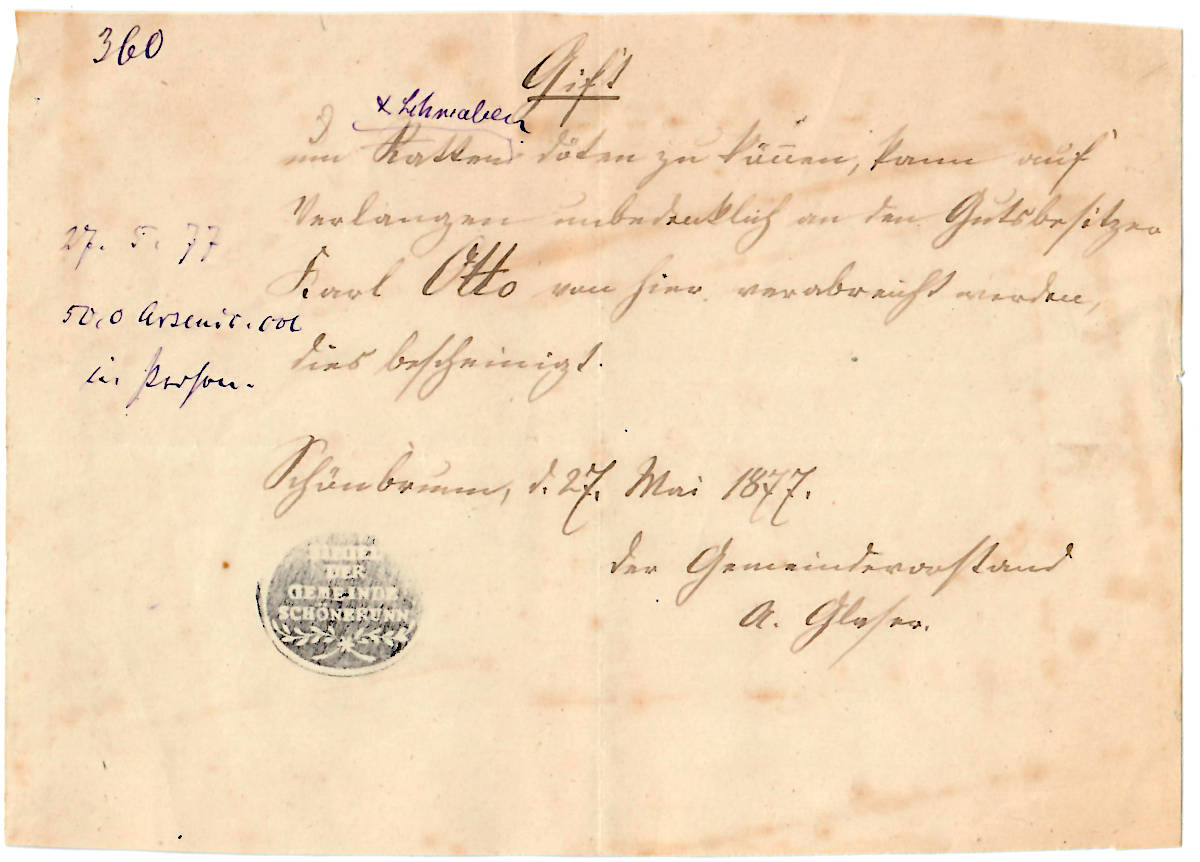 360
Gift
& Schwaben
um Ratten döten zu können, kann auf
Verlangen unbedenklich an den Gutsbesitzer
Karl Otto von hier verabreicht werden,
dies bescheinigt.
27. 5. 77
50,0 Arsenic.
in Person.
Schönbrunn, d. 27. Mai 1877.
der Gemeindevorstand
A. Glaser.
DER
GEMEINDE
SCHÖNBRUNN